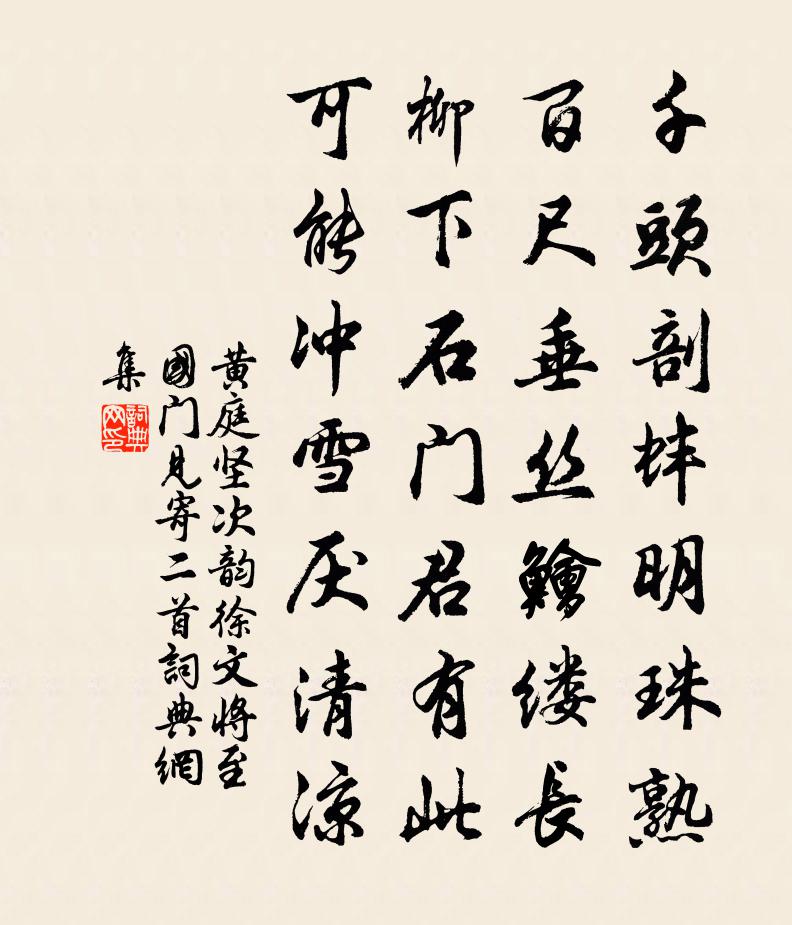 千頭剖蚌明珠熟
百尺垂丝鱠缕長
柳下石门君有此
可能冲雪厌清凉
黄庭坚次韵徐文将至
國门見寄二首詞典網
集
詞典
网印